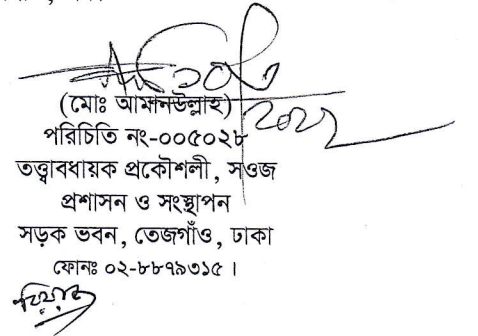 (মোঃ আমানউল্লাহ)
পরিচিতি নং-০০৫০২৮
তত্ত্বাবধায়ক প্রকৌশলী, সওজ
প্রশাসন ও সংস্থাপন
সড়ক ভবন, তেজগাঁও, ঢাকা
ফোনঃ ০২-৮৮৭৯৩১৫ ।